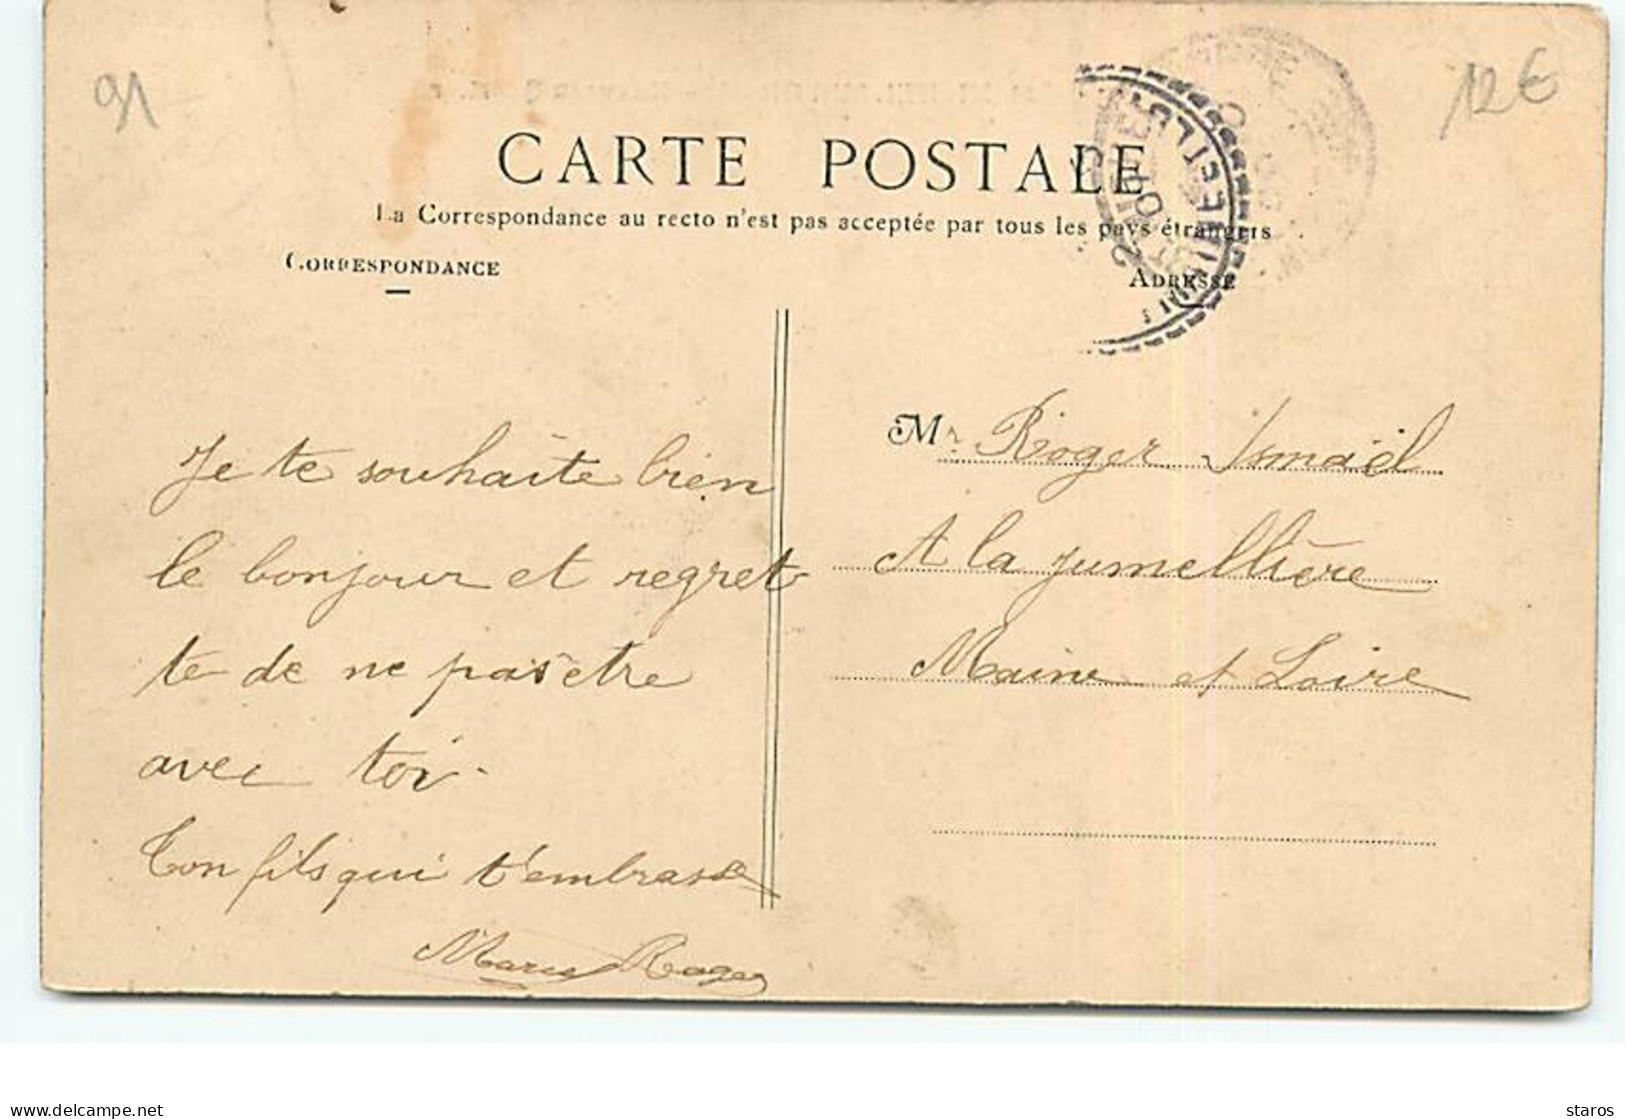 91
12€
CARTE POSTALE
La Correspondance au recto n'est pas acceptée par tous les pays étrangers
CORRESPONDANCE
ADRESSE
Je te souhaite bien
le bonjour et regret
te de ne pas être
avec toi.
Ton fils qui t'embrasse
Roger
Mr Roger Ismaël
A la jumellière
Maine et Loire
delcampe.net
staros